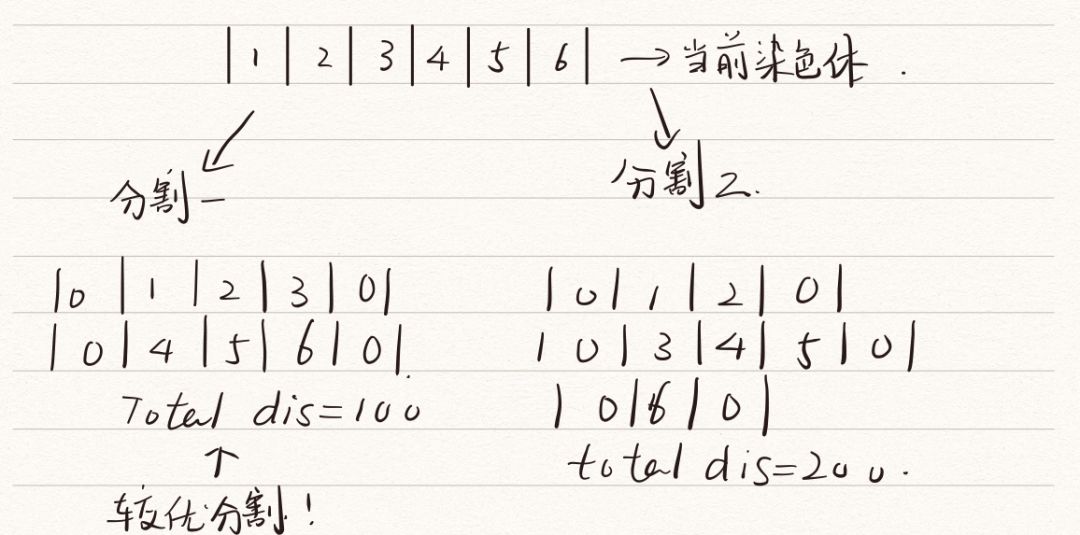 |1|2|3|4|5|6| →当前染色体.
分割一
分割2.
|0|1|2|3|0|
|0|4|5|6|0|.
Total dis=100
↑
较优分割!
|0|1|2|0|
|0|3|4|5|0|
|0|6|0|
total dis=200.